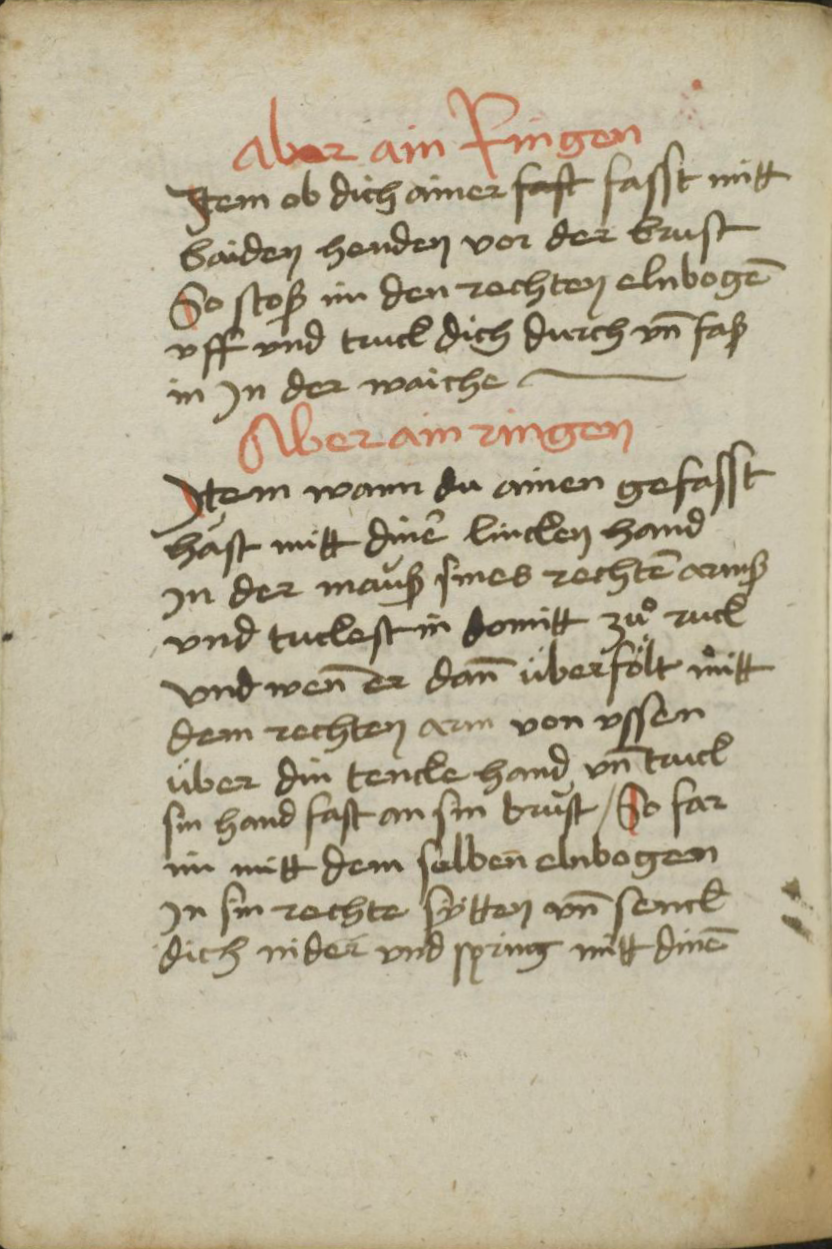 Aber ain Ringen
Item ob dich ainer fast fasst mitt
baiden henden vor der brust
So stoß im den rechten elnbogē
vff vnd truck dich durch vn̄ faß
in In der waiche
Aber ain ringen
Item wann du ainen gefasst
hást mitt dinē lincken hand
In der mauß sines rechtē armß
vnd tuckest in domitt zuͦ ruck
vnd wen̄ er dan̄ überfölt mitt
dem rechten arm von vssen
über din lencke hand vn̄ truck
sin hand fast an sin brust / So far
im mitt dem selben elnbogen
In sin rechte sÿtten vn̄ senck
dich nider vnd spring mitt dinē